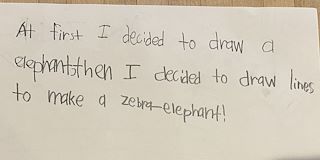 At first I decided to draw a
elephantsthen I decided to draw lines
to make a zebra-elephant!